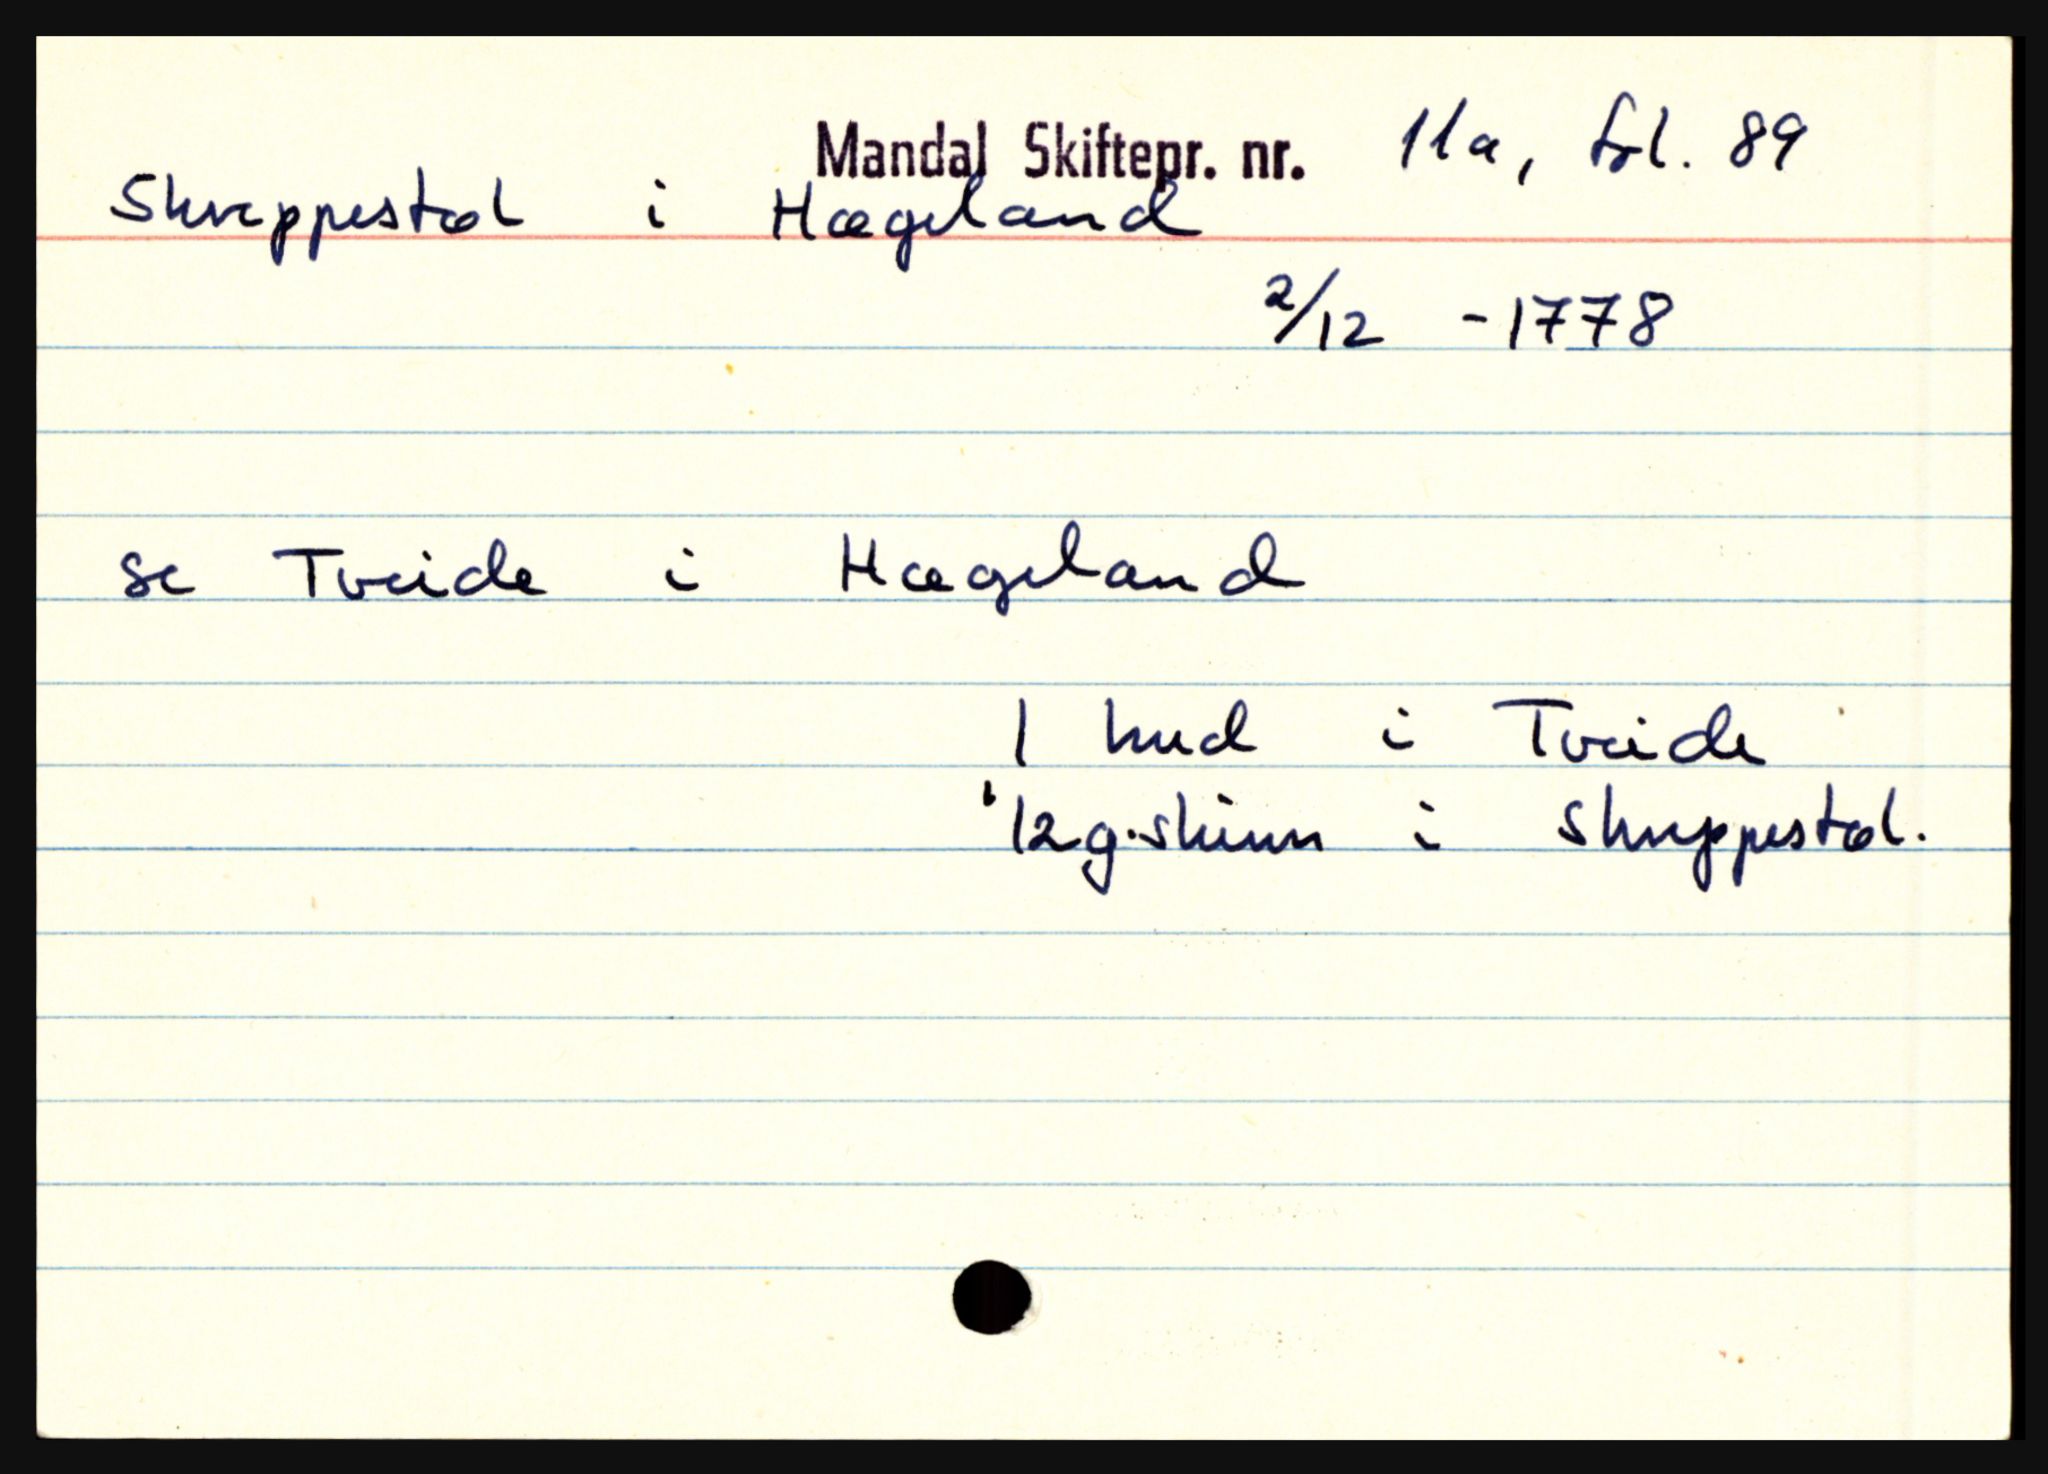 Mandal Skiftepr. nr. 11a, fol. 89
Skreppestøl i Hægeland
2/12 - 1778
se Tveide i Hægeland
1 hud i Tveide
12 g.skinn i Skreppestøl.